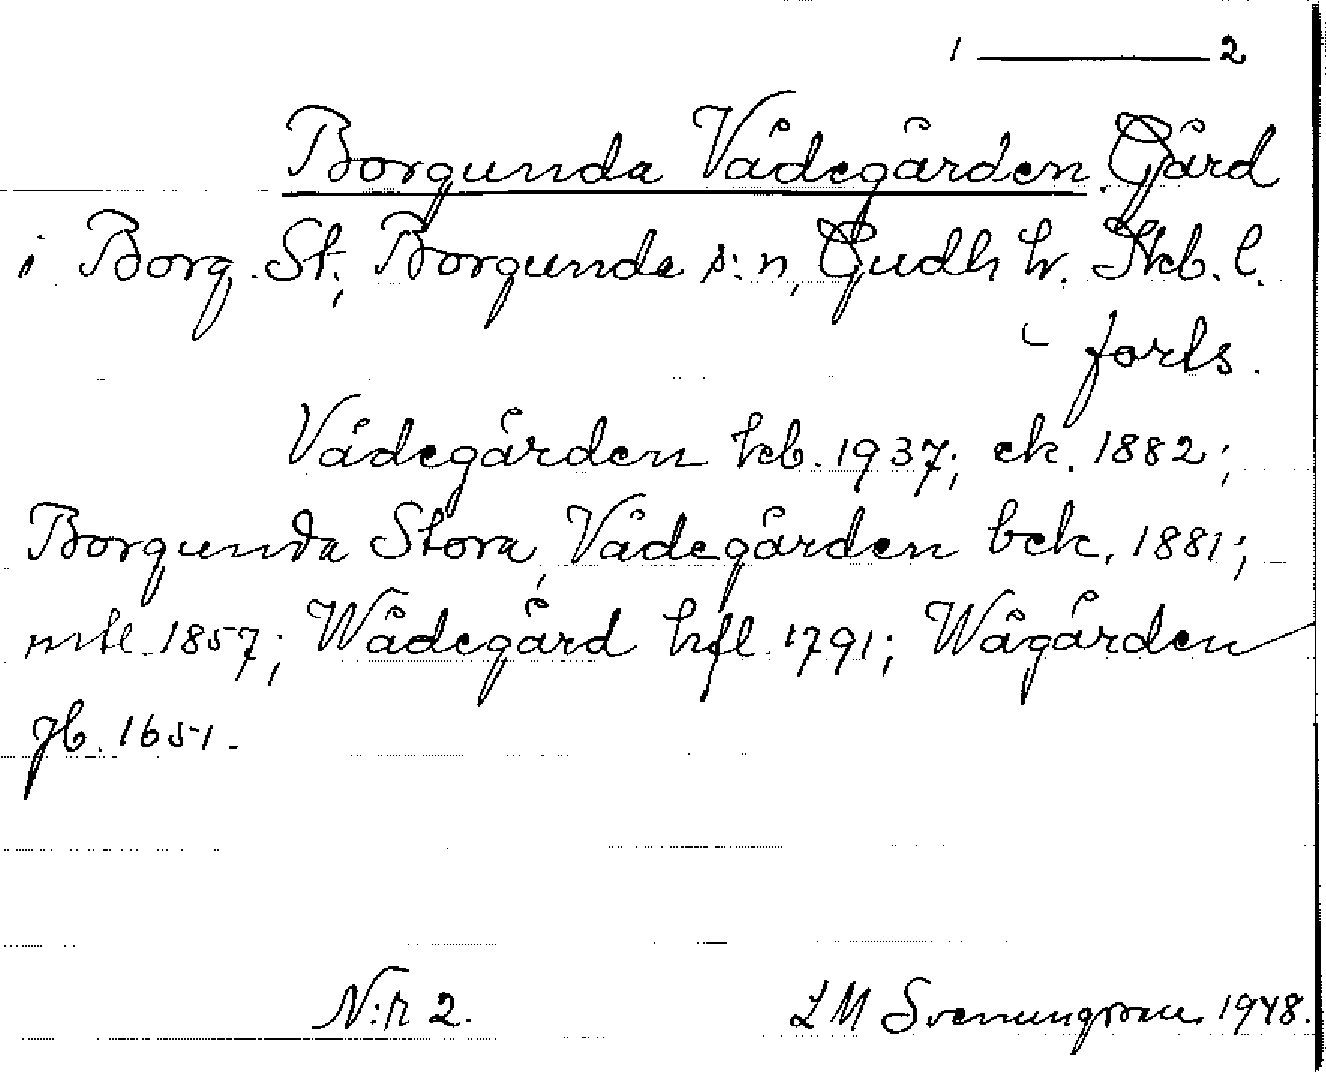 1 ——— 2
Borgunda Vådegården. Gård
i Borg. St., Borgunda s:n, Gudh hr. Skb. l.
forts.
Vådegården kb. 1937; ek. 1882;
Borgunda Stora, Vådegården bek. 1881;
mtl 1857; Wådegård hfl. 1791; Wågården
jb. 1651.
N:r 2. L M Svenungsson 1948.